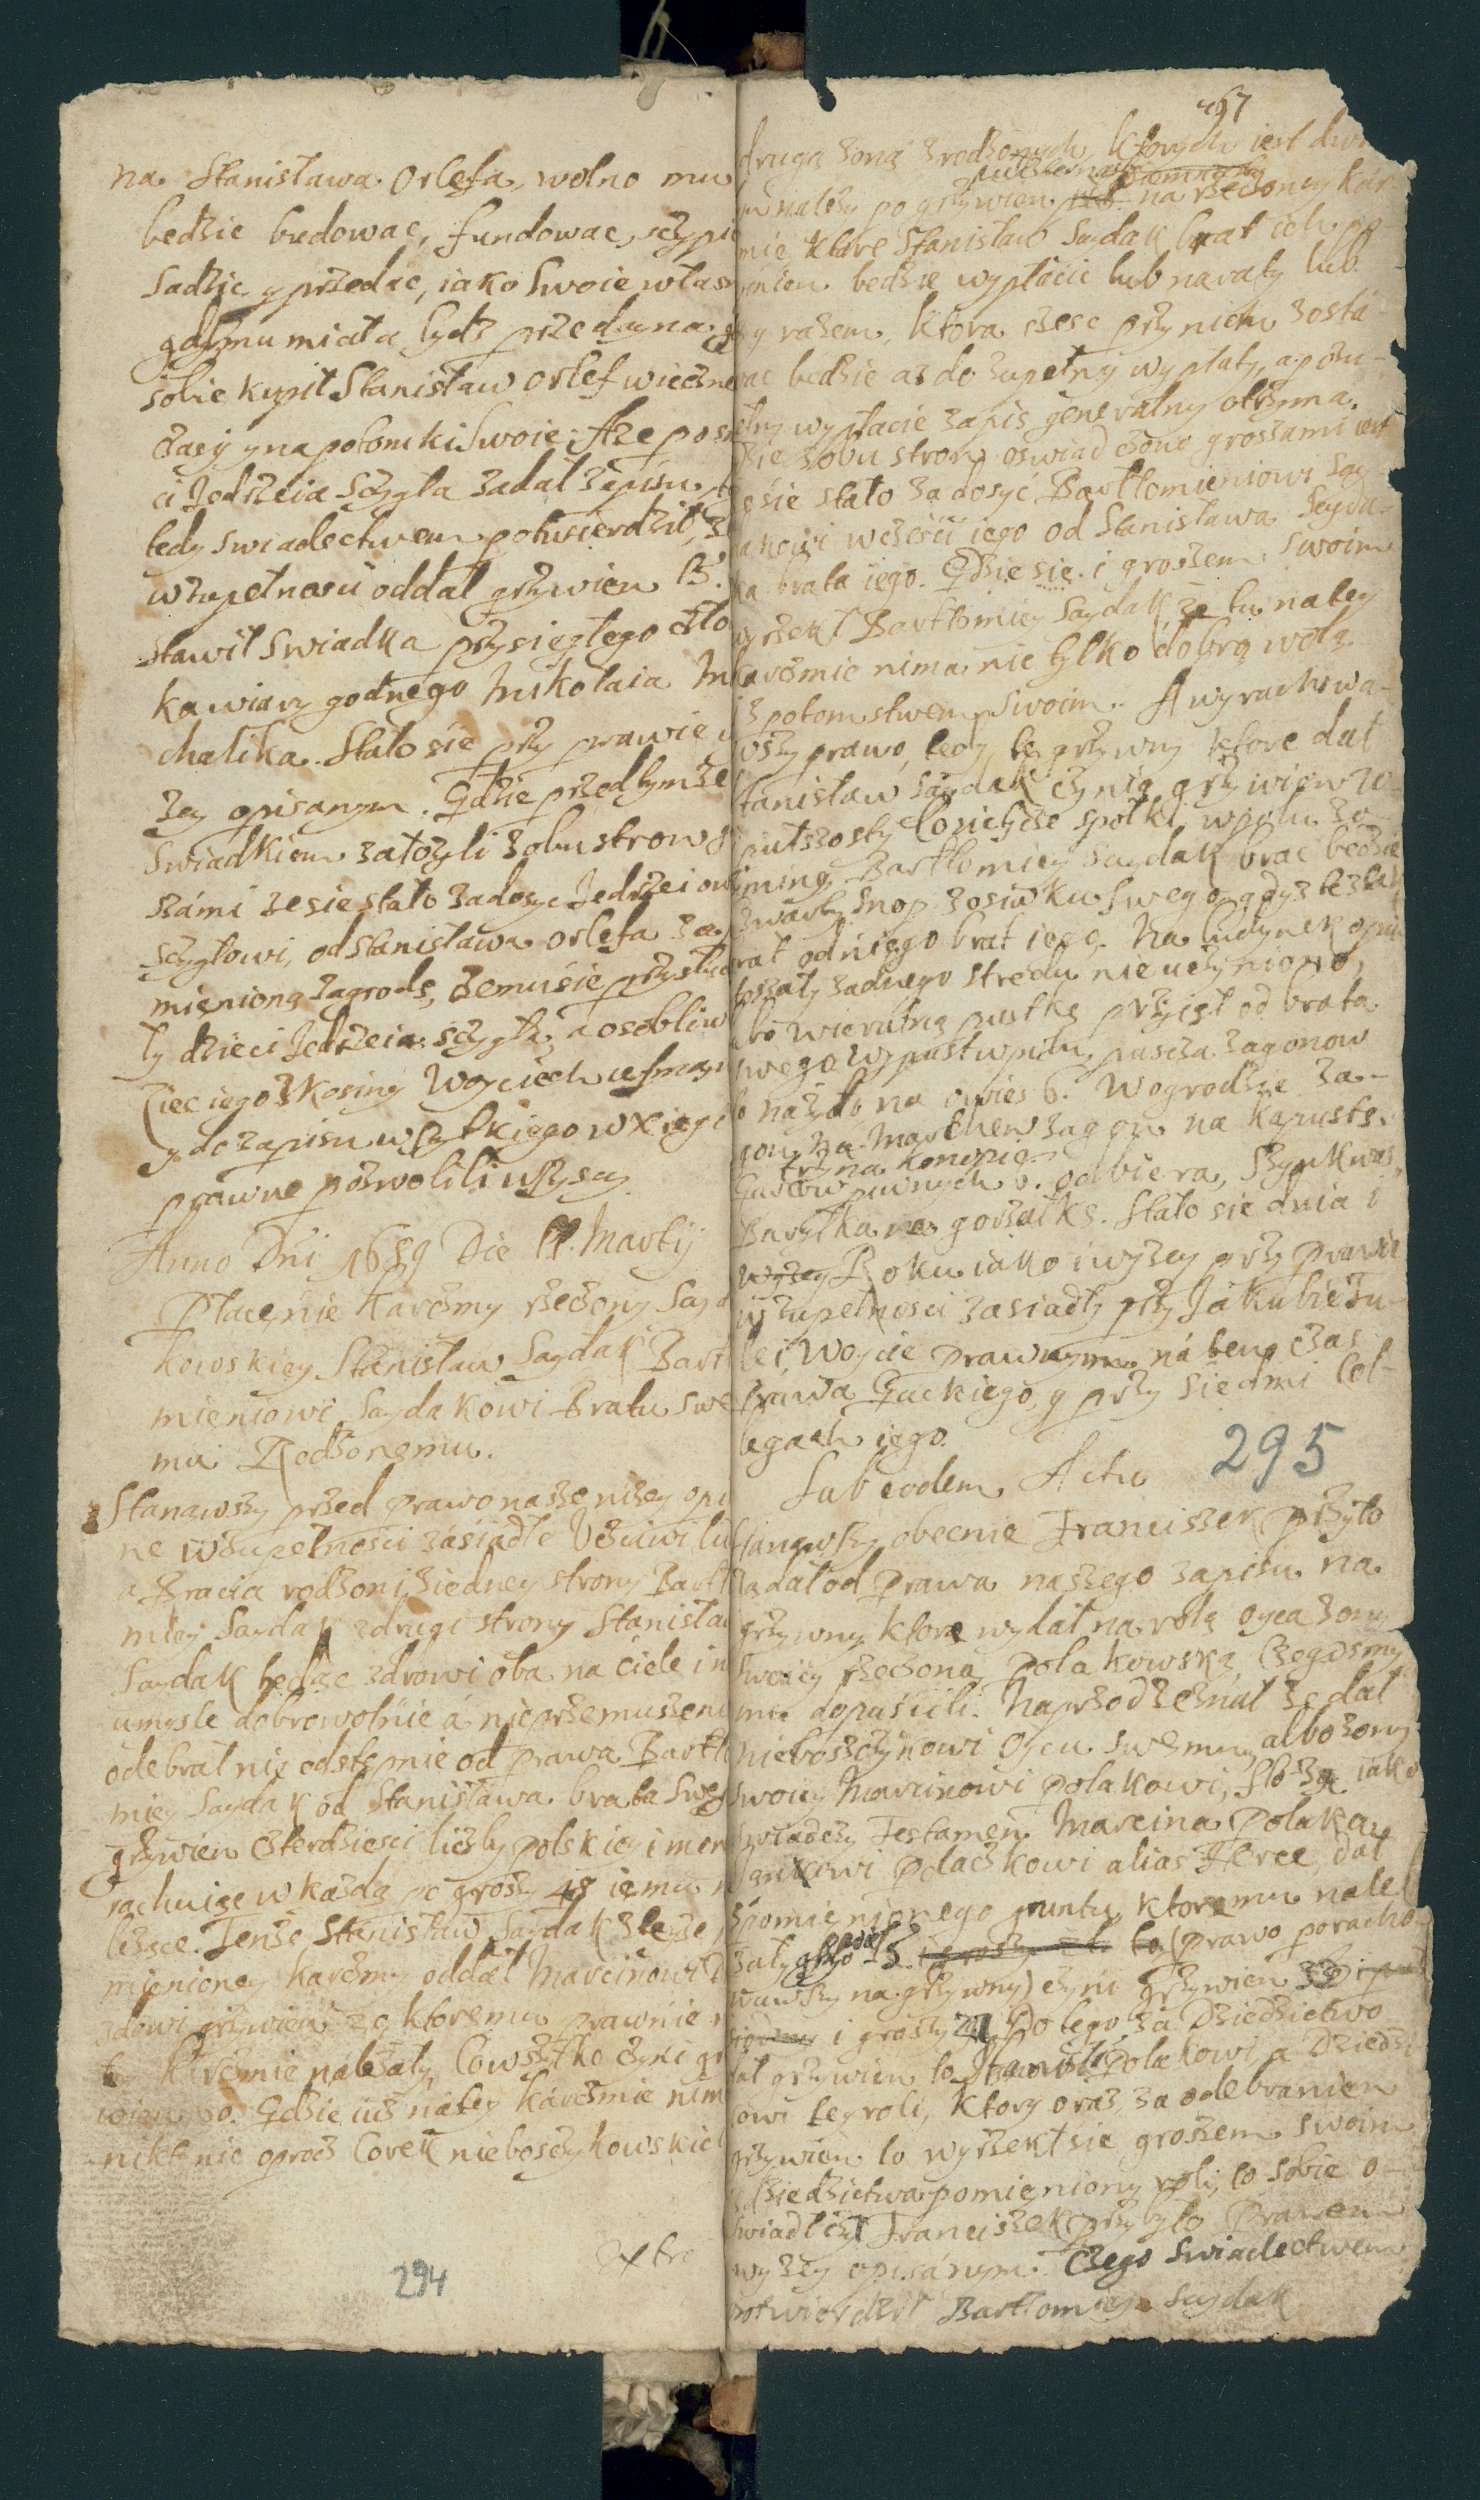 na Stanisława Orlefa, wolno mu
bedzie budowac, fundowac, sczypic
Sadzic y przedac, iako Swoie włas
gdy mu miała bydz przedayna
sobie kupił Stanisław Orlef wieczne
czasy y na potomki Swoie. A ze po
ci Jędrzeia Sczygła zadał zapisu
tedy Swiadectwem potwierdził,
w zupełnosci oddał grzywien 15.
stawił Swiadka przysięgłego czło
ka wiary godnego Mikołaia M
chalika. Stało sie przy prawie
zey opisanym. Gdzie przed tymze
Swiadkiem założyli z obu stron
szami ze sie stało zadosyc Jędrzeiow
Sczygłowi, od Stanisława Orlefa za
mienioną zagrodę, czemu sie przysłu
ły dzieci Jedrzeia Sczygła, a osobliw
Ziec iego z Kosiny Woyciech
y do zapisu wszytkiego w Xięgi
prawne pozwolili wszyscy
Anno Dni 1689 Die 17. Martij
Płacenie karczmy rzeczony Sayda
kowskiey Stanisław Saydak Bart
mieniowi Saydakowi Bratu swe
mu Rodzonemu.
Stanąwszy przed prawo nasze nizey opi
ne w zupełnosci zasiadłe Uczciwi lu
a Bracia rodzoni, z iedney strony Bart
miey Saydak z drugi strony Stanisła
Saydak będąc zdrowi oba na ciele i n
umysle dobrowolnie á nieprzemuszeni
odebrał nie odstępnie od prawa Bartł
miey Saydak od Stanisława brata Swe
grzywien czterdziesci liczby polskiey i mon
rachuiąc w kazdą po groszy 48 iemu n
lezące. Tenże Stanisław Saydak z teyze
mienioney karczmy oddał Marcinowi
zdowi grzywien 20 ktoremu prawnie
karczmie nalezały, Co wszytko czyni gr
wien 60. Gdzie iuż na tey karczmie nim
nikt nic oprocz Corek nieboszczykowskich
Extra
294
267
drugą zoną zrodzonych, ktorych iest dwo
m należy po grzywien na rzeczoney kar
mie, ktore Stanisław Saydak brat ich po
winien bedzie wypłacic lub na raty lub
y razem, ktora częsc przy nich zosta-
wac bedzie az do zupełny wypłaty, a po zu-
ełny wypłacie zapis generalny otrzyma.
Zie z obu stron oswiadczono groszami iest
ze sie stało zadosyc Bartłomieniowi Say-
dakowi w częsci iego od Stanisława Sayda-
ka brata iego. Gdzie się i groszem Swoim
wyrzekł Bartłomiey Saydak, ze tu na tey
karczmie nima nic tylko dobrą wolą
z potomstwem Swoim. A wyrachowa-
wszy prawo, tedy te grzywny ktore dał
Stanisław Saydak czynią grzywien 20
putszosty Co sie tycze spolki, w polu zo-
ziming Bartłomiey Saydak brac bedzie
czwarty snop z osiwku Swego, gdyz tez ta
rał od niego brat iego. Na budynek opu
toszały zadnego stredu nie uczyniono,
bo wierutną pustkę przyjął od brata
swego
na żyto na owies 6. W ogrodzie za-
gon na Marchew zagon na kapustę.
trzy na konopie
Garcow piwnych 6. odbiera, Szynkwas
Baryłka na gorzałkę. Stało sie dnia i
Roku iako i wyzey przy Prawie
w zupełnosci zasiadły przy Jakubie Zu-
lei, Woycie prawnym na ten czas
Prawa Gackiego, y przy siedmi Col-
legach iego.
295
Sub eodem Actu
Stanąwszy obecnie Franciszek Przyło
żądał od Prawa naszego zapisu na
grzywny ktore wydał na rolą oyca zony
Swoiey rzeczoną Polakowską, Czegosmy
mu dopuscili. Naprzod zeznał ze dał
nieboszczykowi Oycu Swemu, albo zony
Swoiey Marcinowi Polakowi, 50 Zł. iako
swiadczy Testament Marcina Polaka,
Jankowi Polaczkowi alias Herce, dał
z pomienionego gruntu, ktoremu nale
żały 15 (prawo poracho
wawszy na grzywny) czyni grzywien 33
i groszy 24. Do tego za Dziedzictwo
dał grzywien 10 Polakowi, a Dziedzi
cowi tey roli, ktory oraz za odebraniem
grzywien 10 wyrzekł sie groszem swoim
Dziedzictwa pomieniony roli, to sobie o-
swiadczył Franciszek Przybyło Prawem
wyzey opisánym. Czego Swiadectwem
potwierdził Bartłomiey Saydak